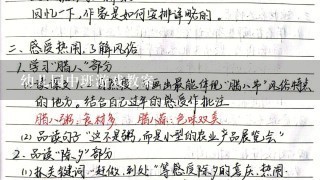 回忆一下，作家是如何安排详略的。
二、感受热闹，了解风俗
1. 学习"腊八"部分
最能体现"腊八节"风俗特点
的地方。结合自己过年的感受作批注
腊八粥：食材多 腊八蒜：色味双美
(2) 品读句子"这不是粥，而是小型的农业产品展览会"
2. 品读"除夕"部分
(1) 抓关键词"赶做、到处"等感受除夕的喜庆、热闹
幼儿园中班游戏教案